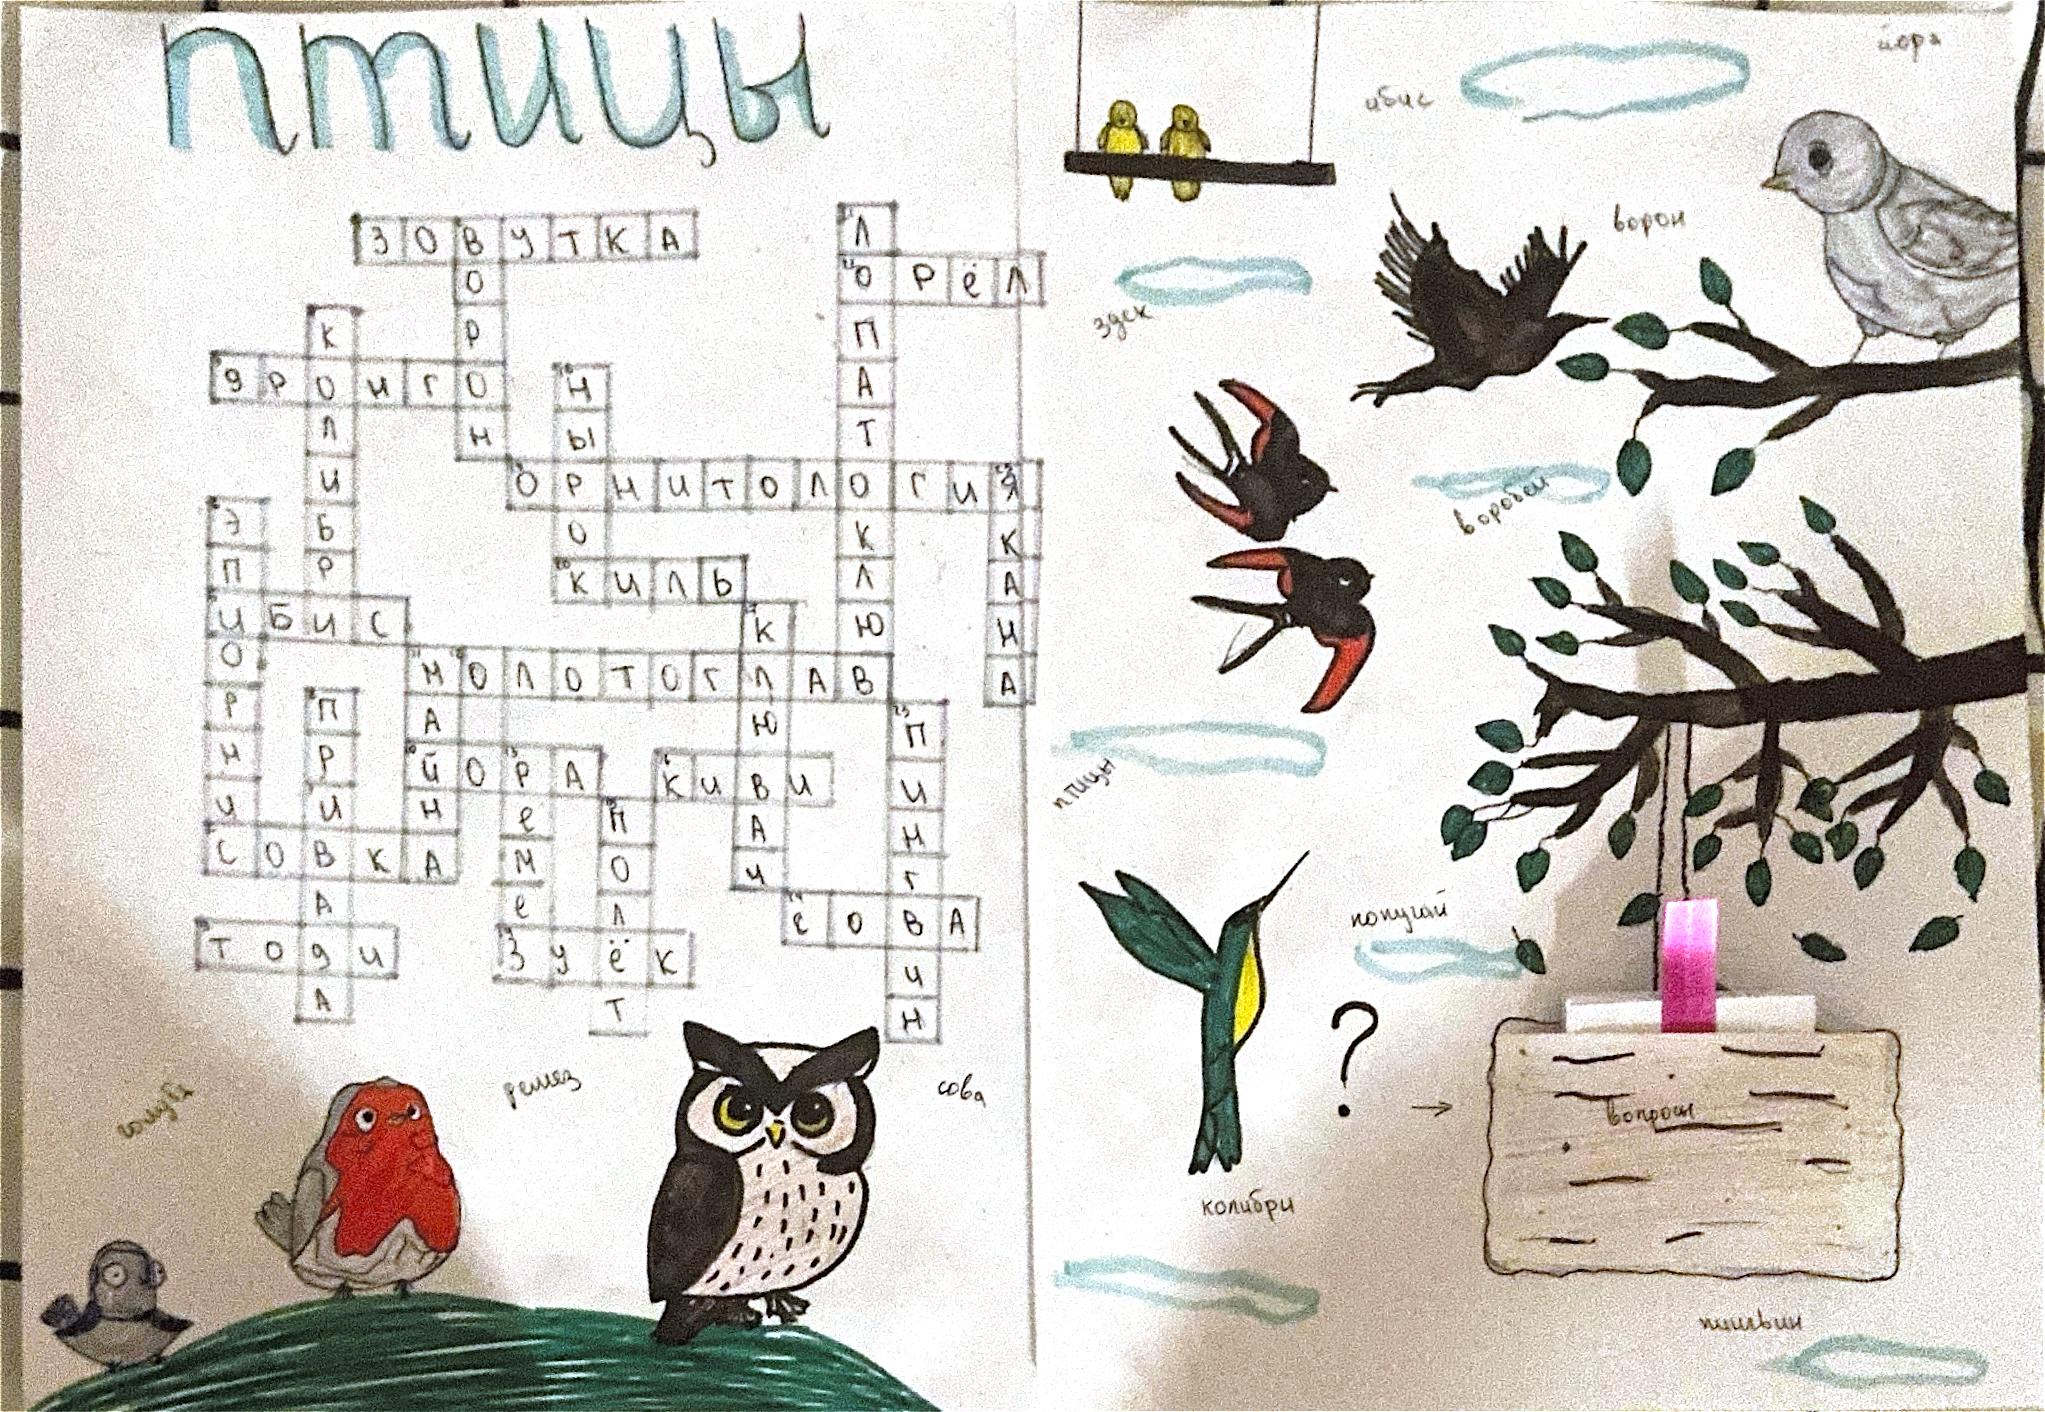 птицы
ЗОВУТКА
ВОРОН
ЛОПАТОКЛЮВ
ОРЁЛ
КОЛИБРИ
ДРОНГО
НЫРОК
ОРНИТОЛОГИЯ
ЯКАНА
ЭПИОРНИС
КИЛЬ
ИБИС
КЛЮВАЧ
МОЛОТОГЛАВ
МАЙНА
ПРИВАДА
ПИНГВИН
ЙОРА
РЕМЕЗ
КИВИ
ПОЛЁТ
СОВКА
СОВА
ТОДИ
ЗУЁК
голубь
ремез
сова
йора
ибис
ворон
воробей
птицы
попугай
вопросы
колибри
пингвин